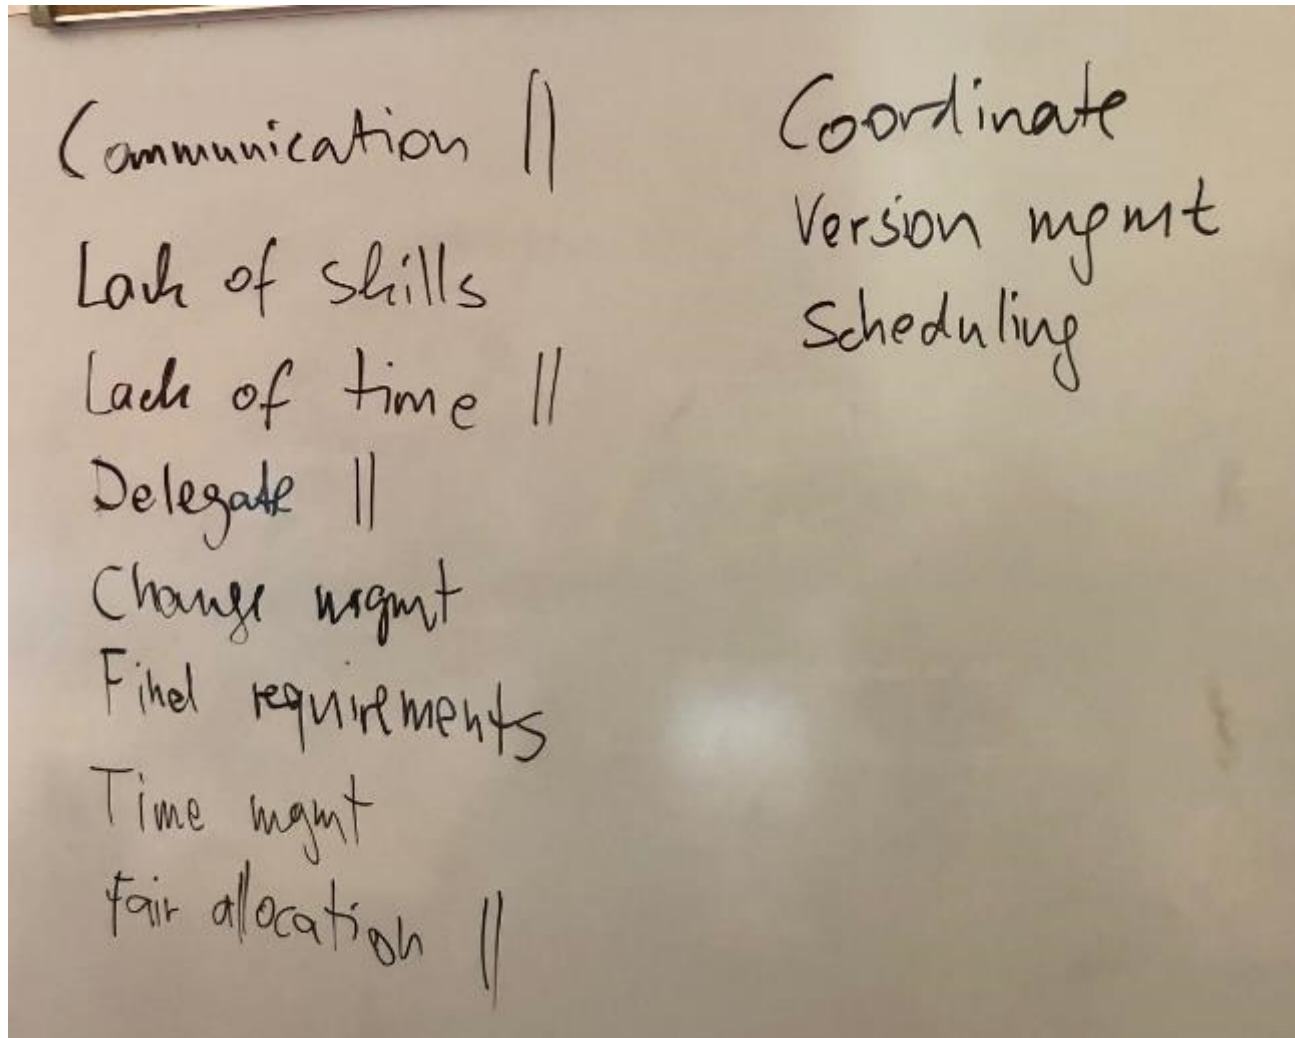 Communication ||
Lack of skills
Lack of time ||
Delegate ||
Change mgmt
Find requirements
Time mgmt
Fair allocation ||
Coordinate
Version mgmt
Scheduling